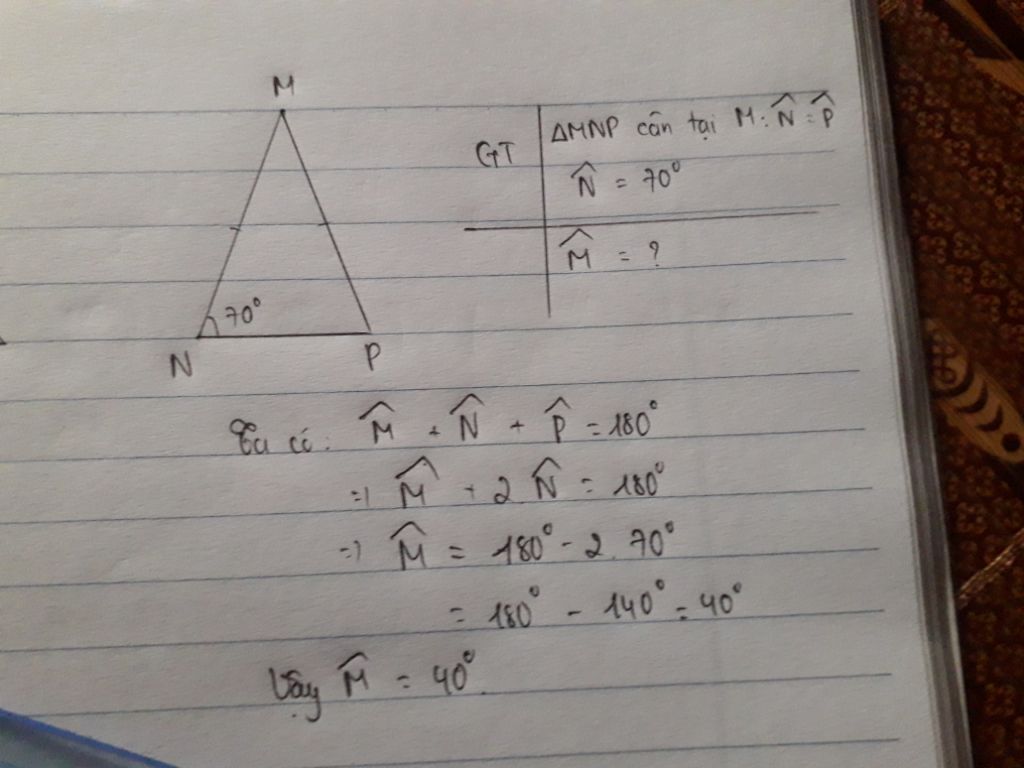 M
GT
ΔMNP cân tại M: N̂ = P̂
N̂ = 70°
M̂ = ?
70°
N
P
Ta có: M̂ + N̂ + P̂ = 180°
=) M̂ + 2 N̂ = 180°
=) M̂ = 180° - 2. 70°
= 180° - 140° = 40°
Vậy M̂ = 40°.